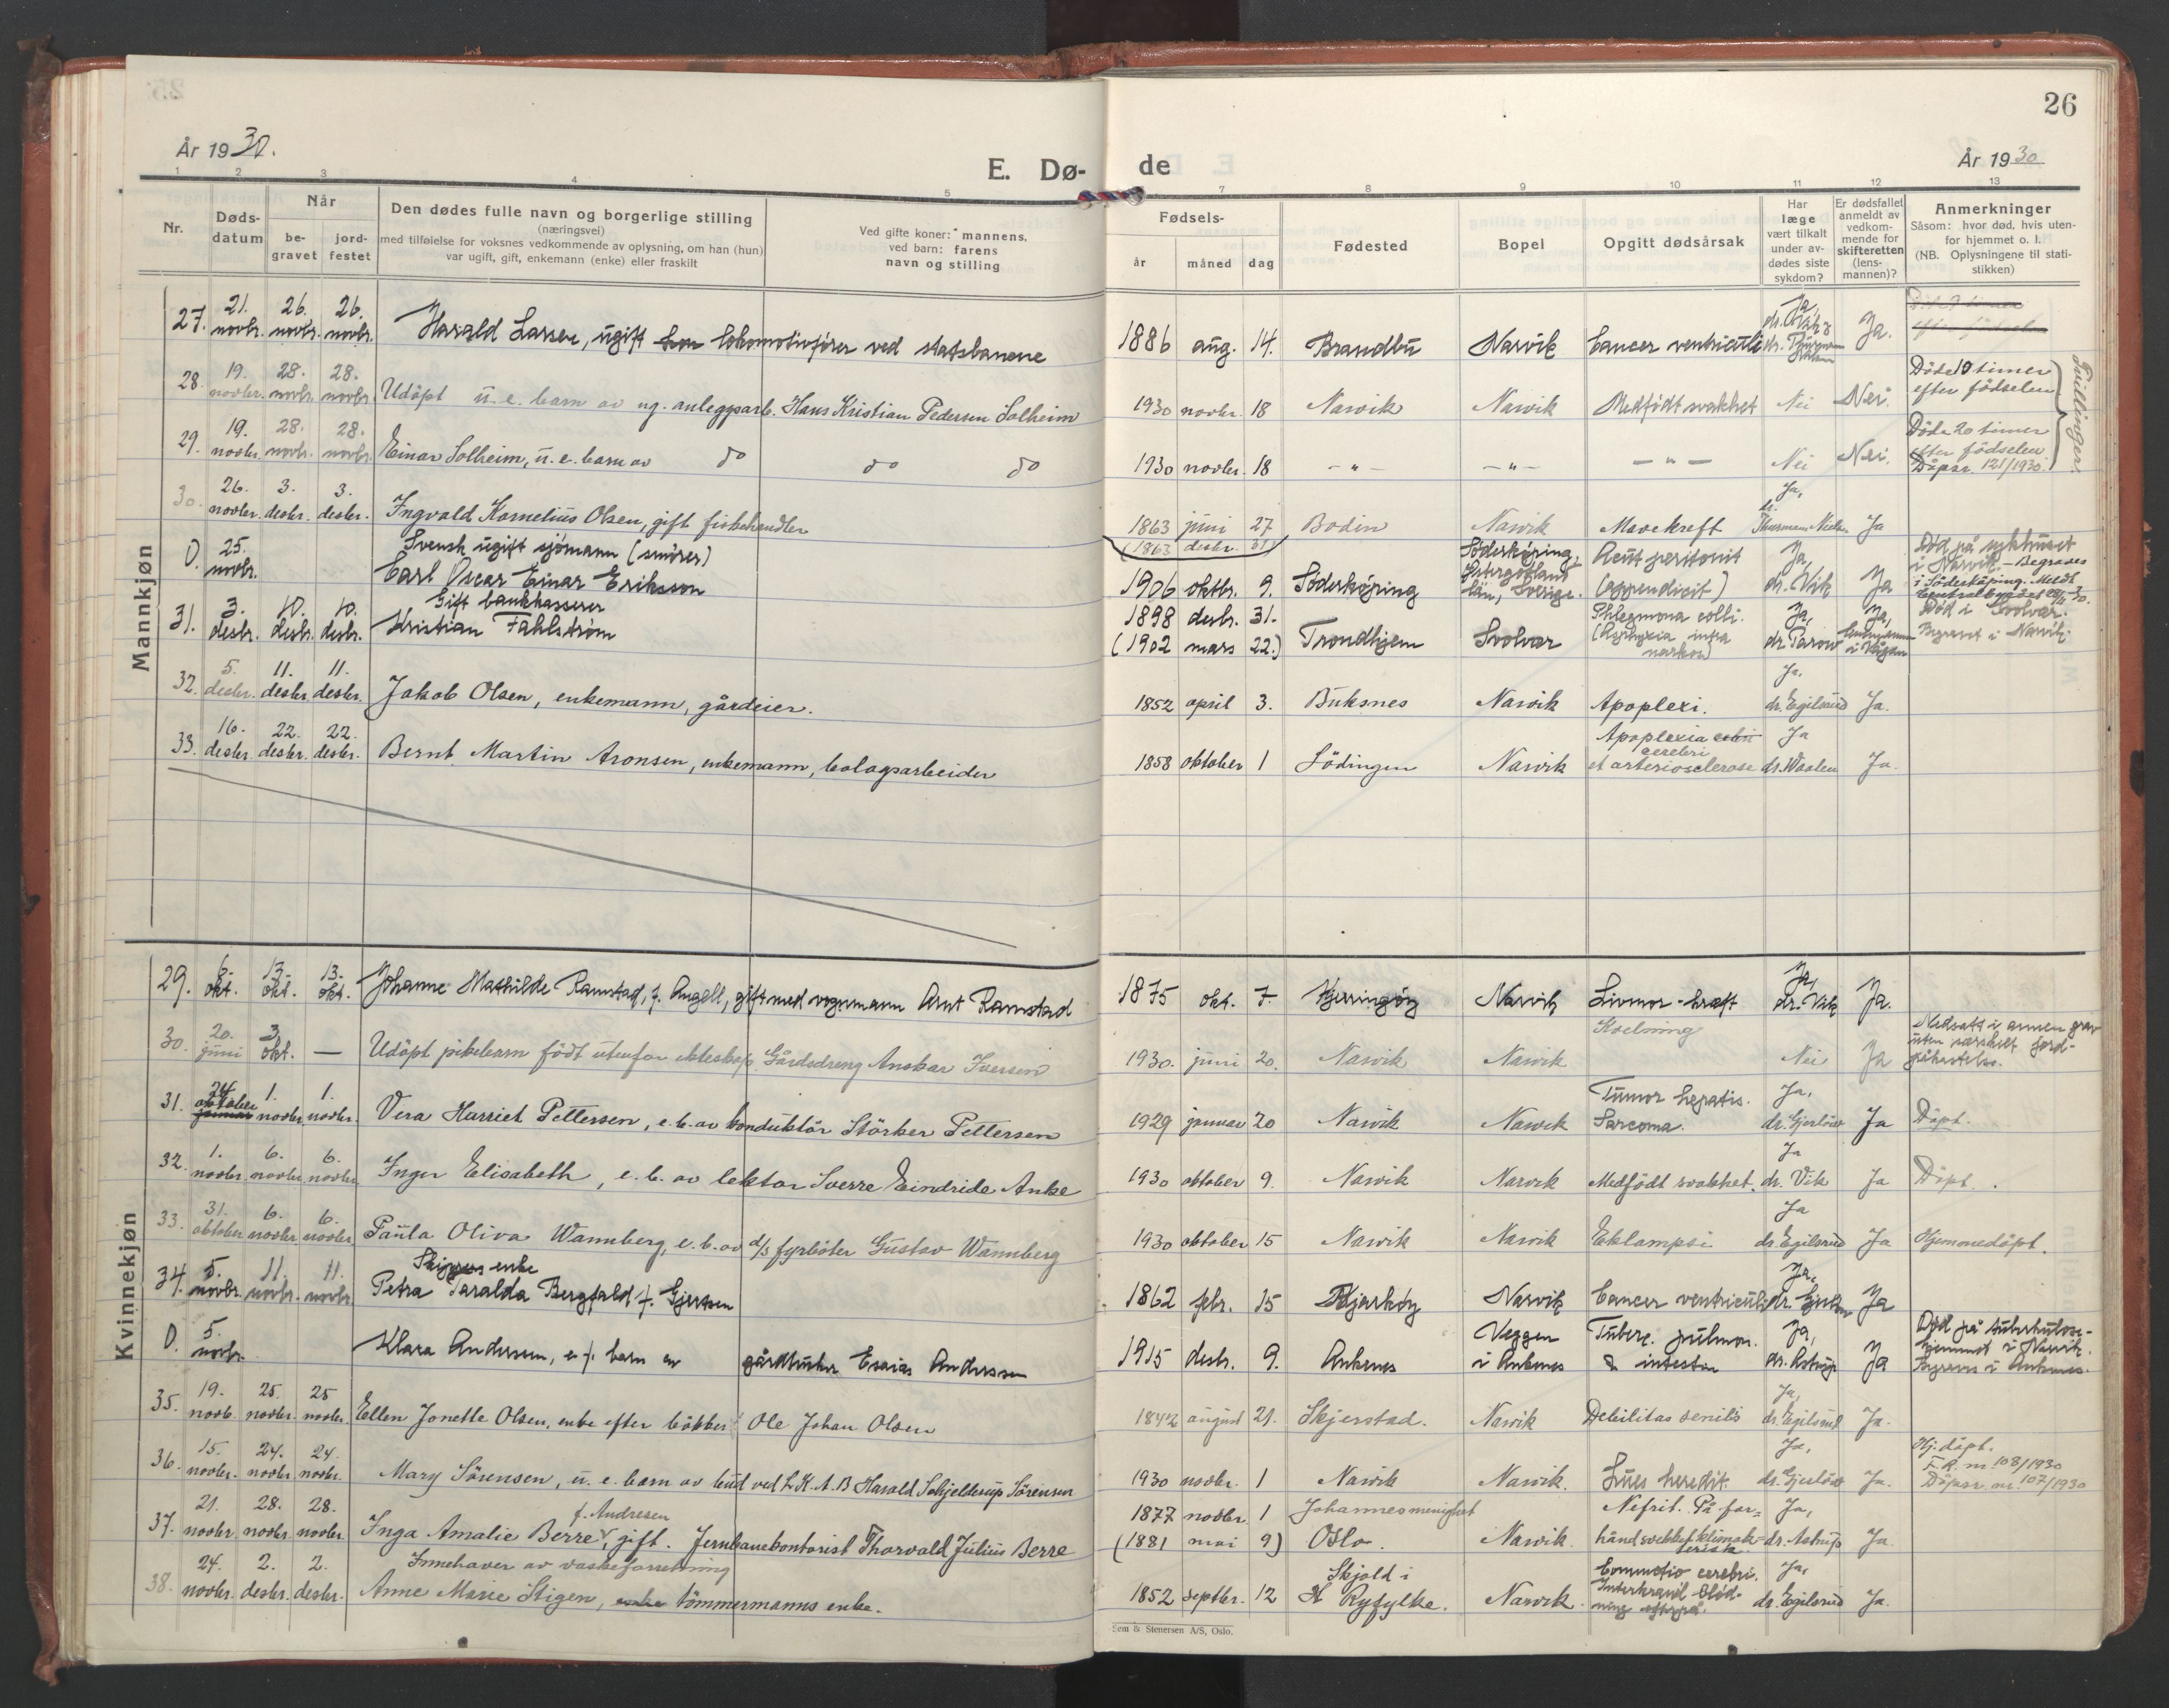 26
År 1930.
E. Dø-
de
År 1930
1 2 3 4 5 7 8 9 10 11 12 13
Nr.
Døds-
datum
Når
be-
gravet
jord-
festet
Den dødes fulle navn og borgerlige stilling
(næringsvei)
med tilføielse for voksnes vedkommende av oplysning, om han (hun)
var ugift, gift, enkemann (enke) eller fraskilt
Ved gifte koner: mannens,
ved barn: farens
navn og stilling
Fødsels-
år
måned
dag
Fødested
Bopel
Opgitt dødsårsak
Har
læge
vært tilkalt
under av-
dødes siste
sykdom?
Er dødsfallet
anmeldt av
vedkom-
mende for
skifteretten
(lens-
mannen)?
Anmerkninger
Såsom: hvor død, hvis uten-
for hjemmet o. l.
(NB. Oplysningene til stati-
stikken)
Mannkjøn
27. 21. novbr. 26. novbr. 26. novbr. Harald Larsen, ugift lokomotivfører ved statsbanene 1886 aug. 14. Brandbu Narvik Cancer ventriculi Ja, Ja.
28. 19. novbr. 28. novbr. 28. novbr. Udöpt u. e. barn av ug. anleggsarb. Hans Kristian Pedersen Solheim 1930 novbr. 18 Narvik Narvik Medfödt svakhet Nei Nei. Döde 10 timer
efter födselen
Tvillinger.
29. 19. novbr. 28. novbr. 28. novbr. Einar Solheim, u. e. barn av do do do 1930 novbr. 18 - " - - " - - " - Nei Nei. Döde 20 timer
efter födselen
Döpsr. 121/1930.
30. 26. novbr. 3. desbr. 3. desbr. Ingvald Kornelius Olsen, gift fiskehandler 1863 juni 27 Bodin Narvik Mavekreft Ja, dr. Thurmann Nielsen Ja
(1863 desbr. 31)
0. 25. novbr. Svensk ugift sjømann (smörer)
Carl Oscar Einar Eriksson 1906 oktbr. 9. Söderköping Söderköping,
Östergötland
län, Sverige. Acut peritonit
(appendicit) Ja, dr. Vik Ja Död på sykehuset
i Narvik. - Begraves
i Söderköping. Meldt
31. 3. desbr. 10. desbr. 10. desbr. Gift bankkasserer
Kristian Fahlstrøm 1898 desbr. 31.
(1902 mars 22.) Trondhjem Svolvær Phlegmona colli.
(Asphyxia intra
narkos) Ja, dr. Parow Ja, lensmannen
i Vågan Død i Svolvær.
Begravet i Narvik.
32. 5. desbr. 11. desbr. 11. desbr. Jakob Olsen, enkemann, gårdeier. 1852 april 3. Buksnes Narvik Apoplexi. Ja. dr. Egilsrud Ja.
33. 16. desbr. 22. desbr. 22. desbr. Bernt Martin Aronsen, enkemann, bolagsarbeider 1858 oktober 1 Lödingen Narvik Apoplexia
cerebri
et arteriosclerose Ja dr. Waalen Ja.
Kvinnekjøn
29. 6. okt. 13. okt. 13. okt. Johanne Mathilde Ramstad, f. Angell, gift med vognmann Arnt Ramstad 1875 okt. 7. Kjerringøy Narvik Livmor-kræft Ja, dr. Vik Ja.
30. 20. juni 3 okt. — Udöpt pikebarn födt utenfor ekteskap Gårdsdreng Anskar Iversen 1930. juni 20. Narvik Narvik Kvelning Nei Ja Nedsatt i annen grav
uten særskilt jord-
påkastelse.
31. 24. oktober 1. novbr. 1. novbr. Vera Harriet Pettersen, e. b. av konduktör Störker Pettersen 1929 januar 20 Narvik Narvik Tumor hepatis.
Sarcoma. Ja, dr. Gjerlöw Ja Döpt.
32. 1. novbr. 6. novbr. 6. novbr. Inger Elisabeth, e. b. av lektor Sverre Eindride Anke 1930 oktober 9. Narvik Narvik Medfödt svakhet. Ja dr. Vik Ja Döpt.
33. 31. oktober 6. novbr. 6. novbr. Paula Oliva Wannberg, e. b. av d/s fyrböter Gustav Wannberg 1930 oktober 15 Narvik Narvik Eklampsi Ja dr. Egilsrud Ja Hjemmedöpt.
34. 5. novbr. 11. novbr. 11. novbr. Skippers enke
Petra Taralda Bergfald f. Gjertsen 1862 febr. 15 Bjarkøy Narvik Cancer ventriculi Ja, dr. Gjerløw Ja
0. 5. novbr. Klara Andersen, e. f. barn av gårdbruker Esaias Andersen 1915 desbr. 9. Ankenes Veggen
i Ankenes Tuberc. pulmon.
& intestin Ja, dr. Astrup Ja Død på tuberkulose-
hjemmet i Narvik.
Begraves i Ankenes.
35. 19. novb. 25. novbr. 25 novbr. Ellen Jonette Olsen, enke efter bökker Ole Johan Olsen 1842 august 21. Skjerstad. Narvik Debilitas senilis Ja, dr. Egilsrud Ja.
36. 15. novbr. 24. novbr. 24. novbr. Mary Sörensen, u. e. barn av bud ved L. K. A. B Harald Schjelderup Sörensen 1930 novbr. 1 Narvik Narvik. Lues heredit. Ja, dr. Gjerlöw Ja. Hj. döpt.
F. R. nr 108/1930
Döpsr. nr. 107/1930
37. 21. novbr. 28. novbr. 28. novbr. f. Andresen
Inga Amalie Berre, gift. Jernbanekontorist Thorvald Julius Berre 1877 novbr. 1 Johannes menighet
(1881 mai 9) Oslo. Narvik. Nefrit. På for-
hånd svekket klimak-
terisk Ja, dr. Astrup Ja.
38. 24. novbr. 2. desbr. 2. desbr. Innehaver av vaskeforretning
Anne Marie Stigen, tömmermanns enke. 1852 septbr. 12 Skjold i
Ryfylke. Narvik. Commotio cerebri.
Interkraniel Blöd-
ning Ja, dr. Egilsrud Ja.
Sem & Stenersen A/S, Oslo.